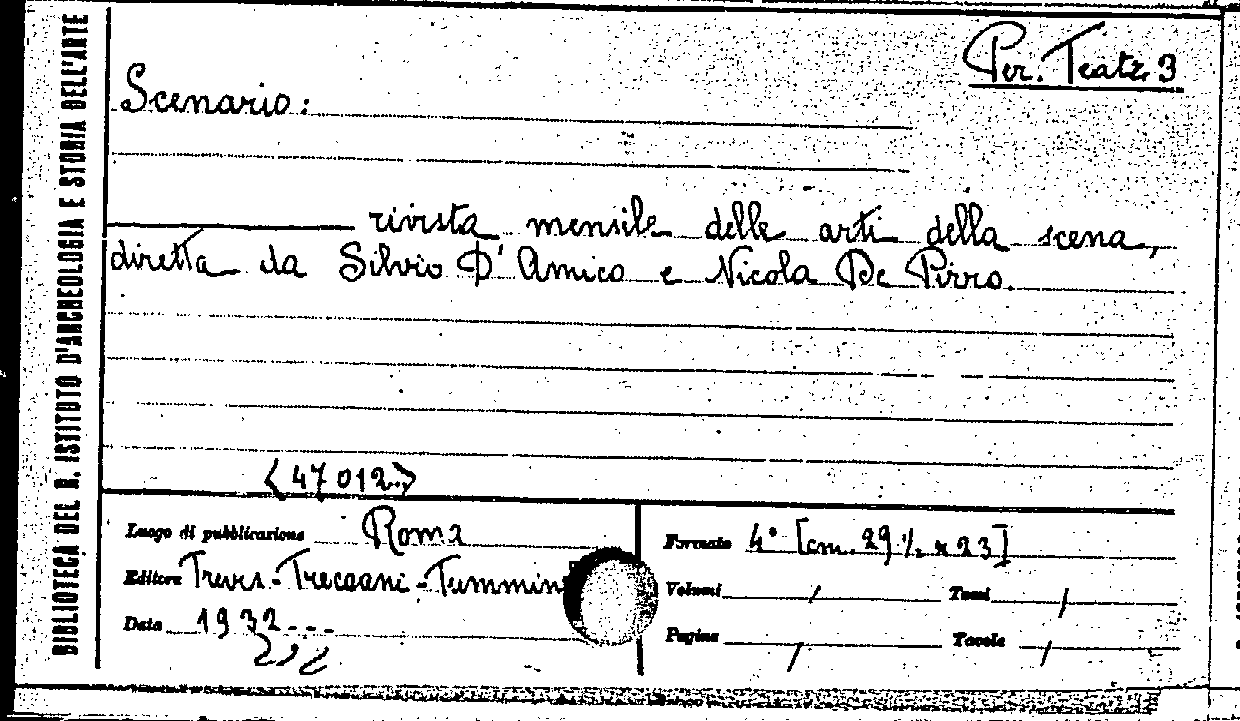 BIBLIOTECA DEL R. ISTITUTO D'ARCHEOLOGIA E STORIA DELL'ARTE
Per. Teatr. 3
Scenario:
rivista mensile delle arti della scena,
diretta da Silvio D'Amico e Nicola De Pirro.
<47012>
Luogo di pubblicazione Roma
Editore Treves-Treccani-Tummin
Data 1932...
Formato 4° [cm. 29 ½ x 23]
Volumi / Tomi /
Pagine / Tavole /